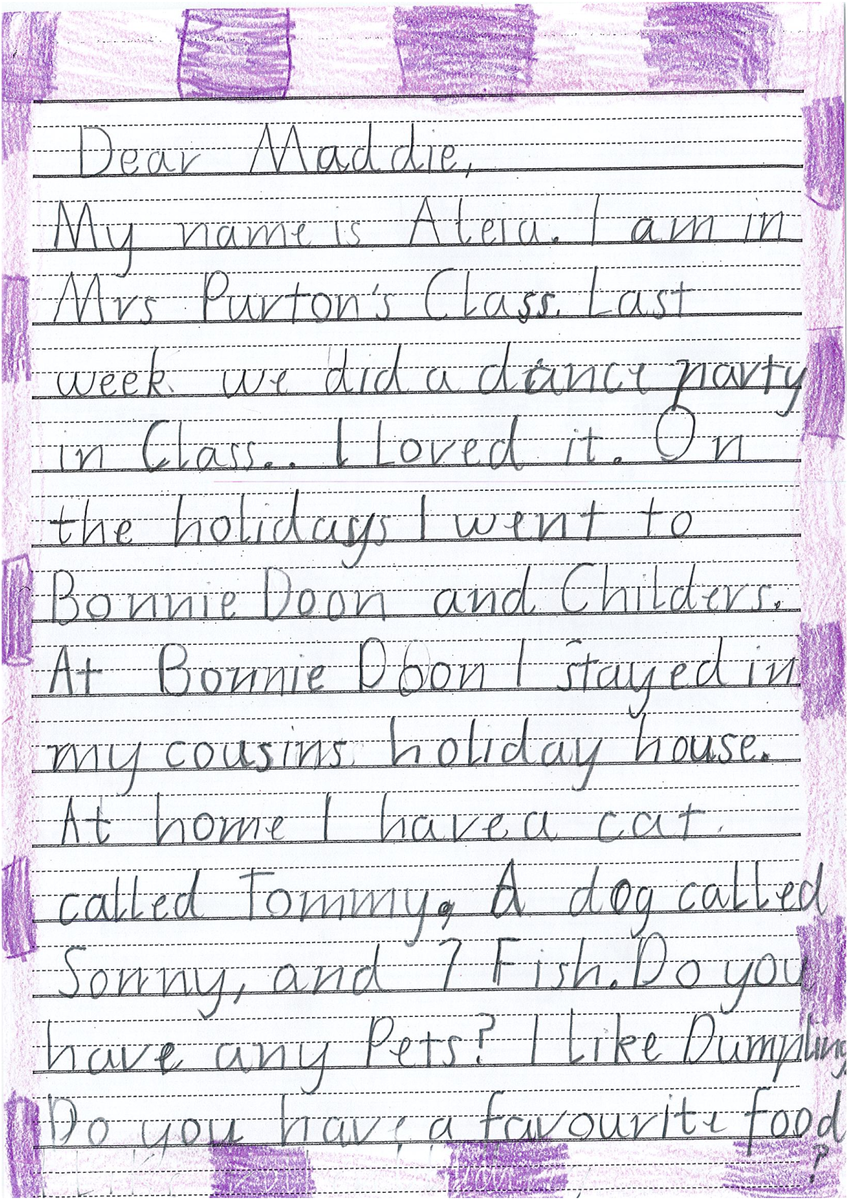 Dear Maddie,
My name is Aleia. I am in
Mrs Purton's Class. Last
week we did a dance party
in Class.. I Loved it. On
the holidays I went to
Bonnie Doon and Childers.
At Bonnie Doon I stayed in
my cousins holiday house.
At home I have a cat.
called Tommy, A dog called
Sonny, and 7 Fish. Do you
have any Pets? I like Dumpling
Do you have a favourite food
?